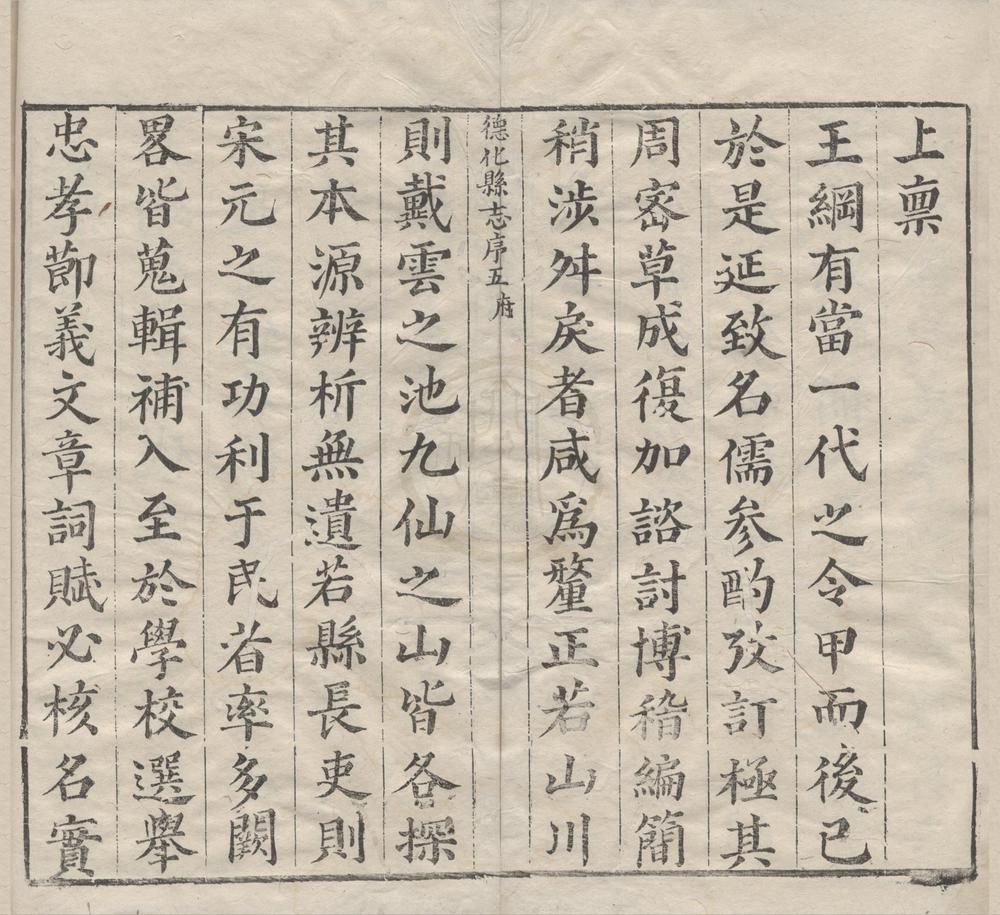 上禀
王綱有當一代之令甲而後已
於是延致名儒參酌攷訂極其
周密草成復加諮討博稽編簡
稍涉舛戾者咸爲釐正若山川
德化縣志序五府
則戴雲之池九仙之山皆各探
其本源辨析無遺若縣長吏則
宋元之有功利于民者率多闕
畧皆蒐輯補入至於學校選舉
忠孝節義文章詞賦必核名實